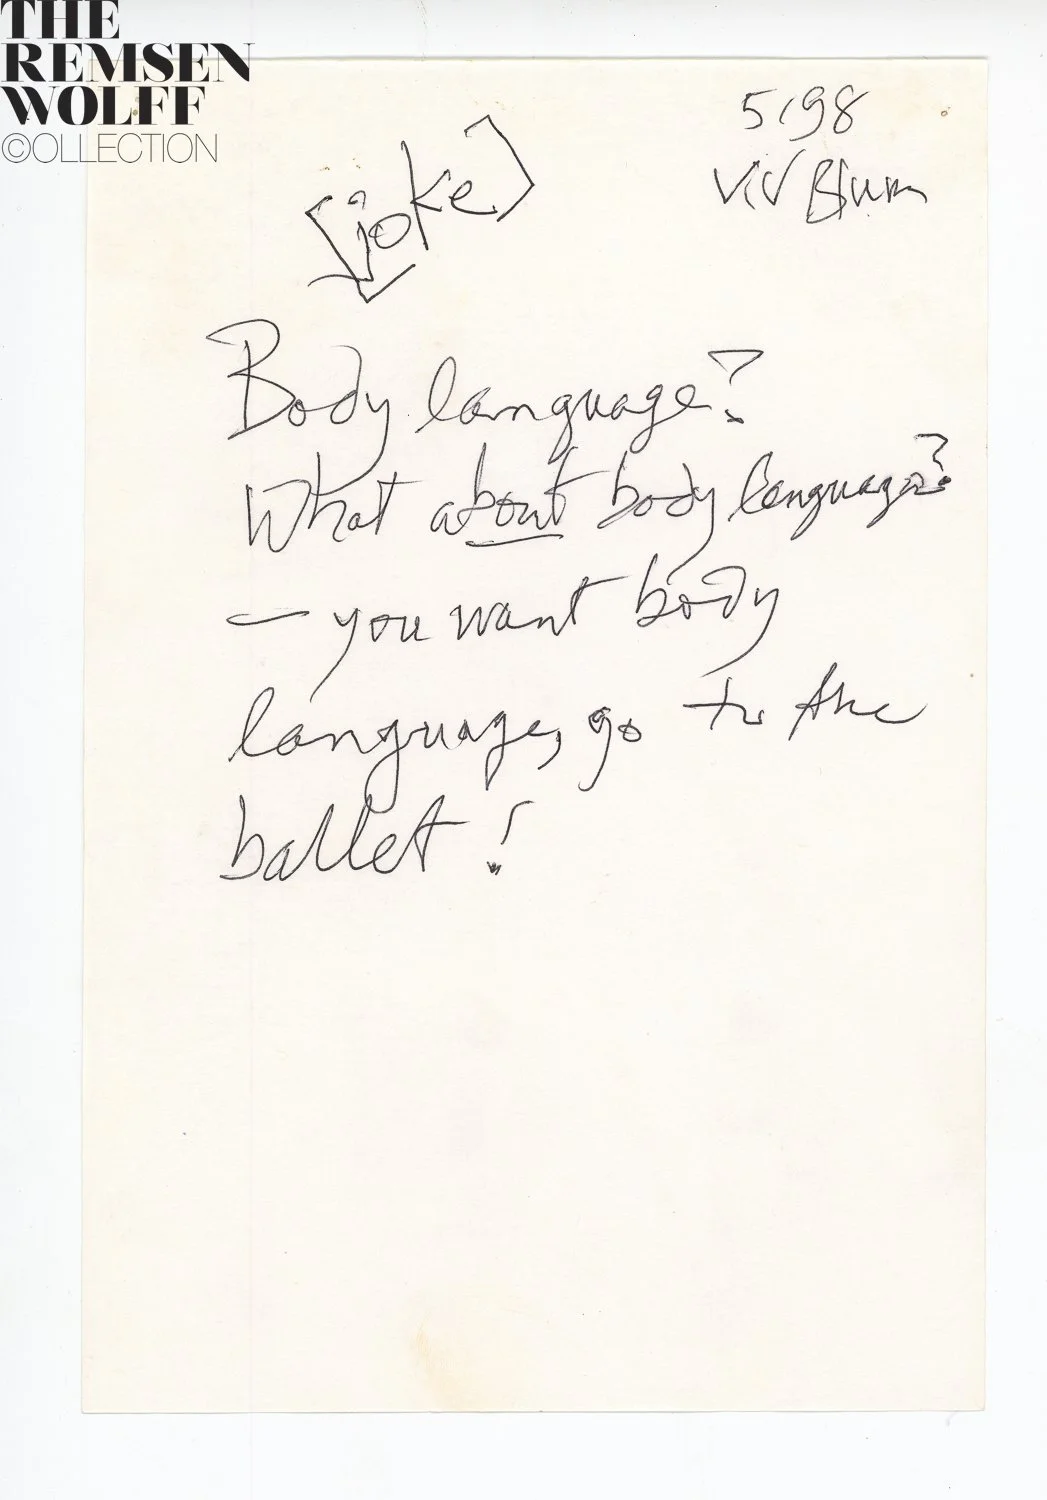 THE
REMSEN
WOLFF
©OLLECTION
5/98
Viv Blum
[joke]
Body language?
What about body language?
— you want body
language, go to the
ballet!